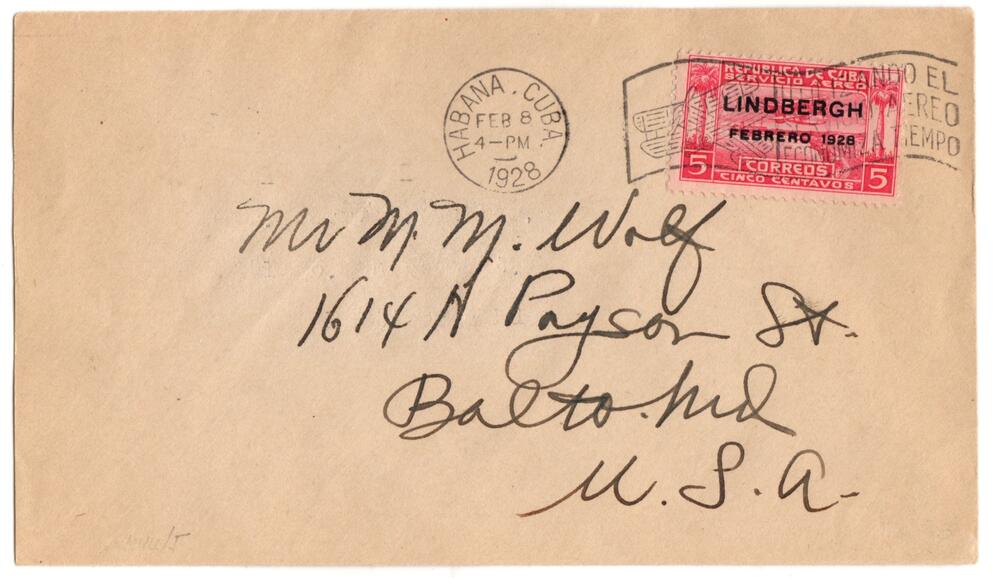 HABANA, CUBA.
FEB 8
4-PM
1928
REPUBLICA DE CUBA
SERVICIO AEREO
LINDBERGH
FEBRERO 1928
5 CORREOS 5
CINCO CENTAVOS
NDO EL
AEREO
ECONOMIZA TIEMPO
Mr M. M. Wolf
1614 N Payson St.
Balto. Md
U. S. A-